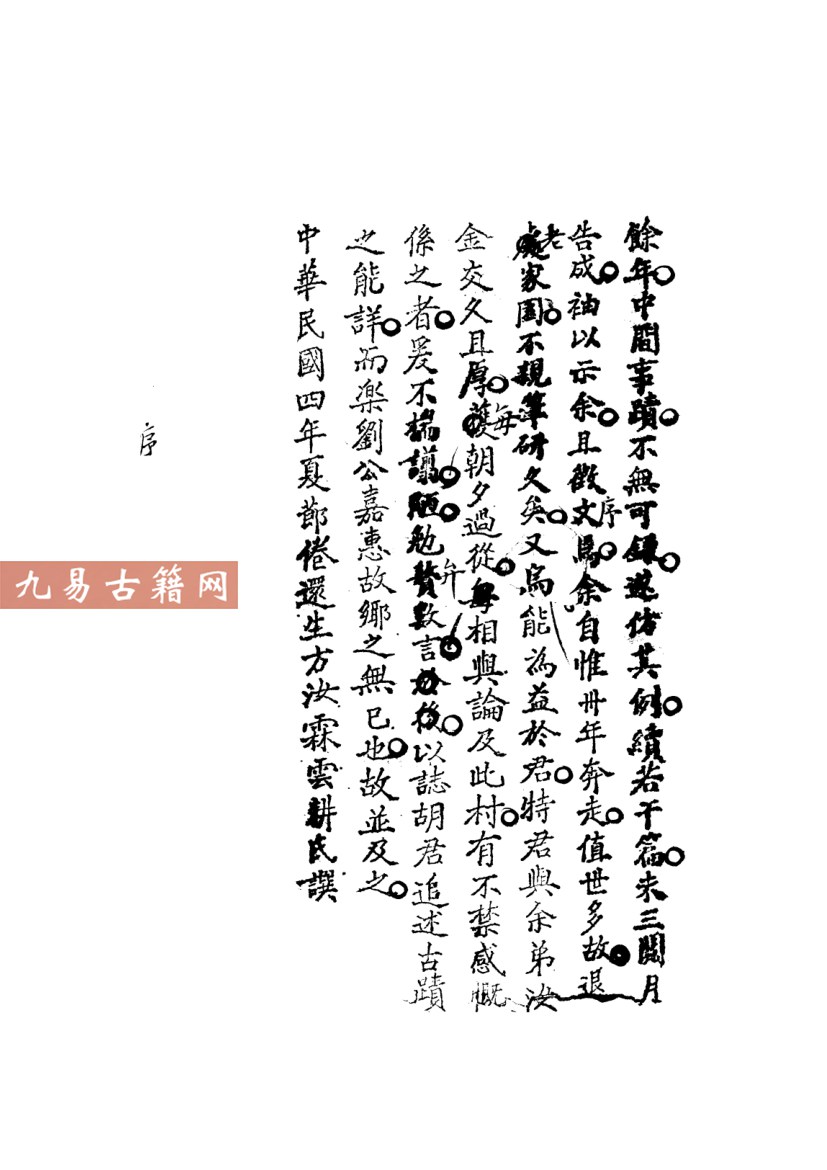 餘年。中間事蹟。不無可錄。述仿其例。續若干篇。未三閱月
告成。袖以示余。且徵文序焉。余自惟卅年奔走。值世多故。退
老家園。不親筆研久矣。又烏能為益於君。特君與余弟汝
金交久且厚。每獲朝夕過從。每相與論及此村。有不禁感慨
係之者。爰不揣譾陋。勉贅數言弁後。以誌胡君追述古蹟
之能詳。而樂劉公嘉惠故鄉之無已也。故並及之。
中華民國四年夏節倦還生方汝霖雲耕氏譔
序
九易古籍网